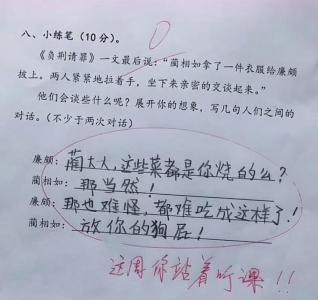 0
八、小练笔(10分)。
《负荆请罪》一文最后说:“蔺相如拿了一件衣服给廉颇
披上。两人紧紧地拉着手,坐下来亲密的交谈起来。”
他们会谈些什么呢?展开你的想象,写几句人们之间的
对话。(不少于两次对话)
廉颇:蔺大人,这些菜都是你烧的么?
蔺相如:那当然!
廉颇:那也难怪,都难吃成这样了!
蔺相如:放你的狗屁!
这周你站着听课!!